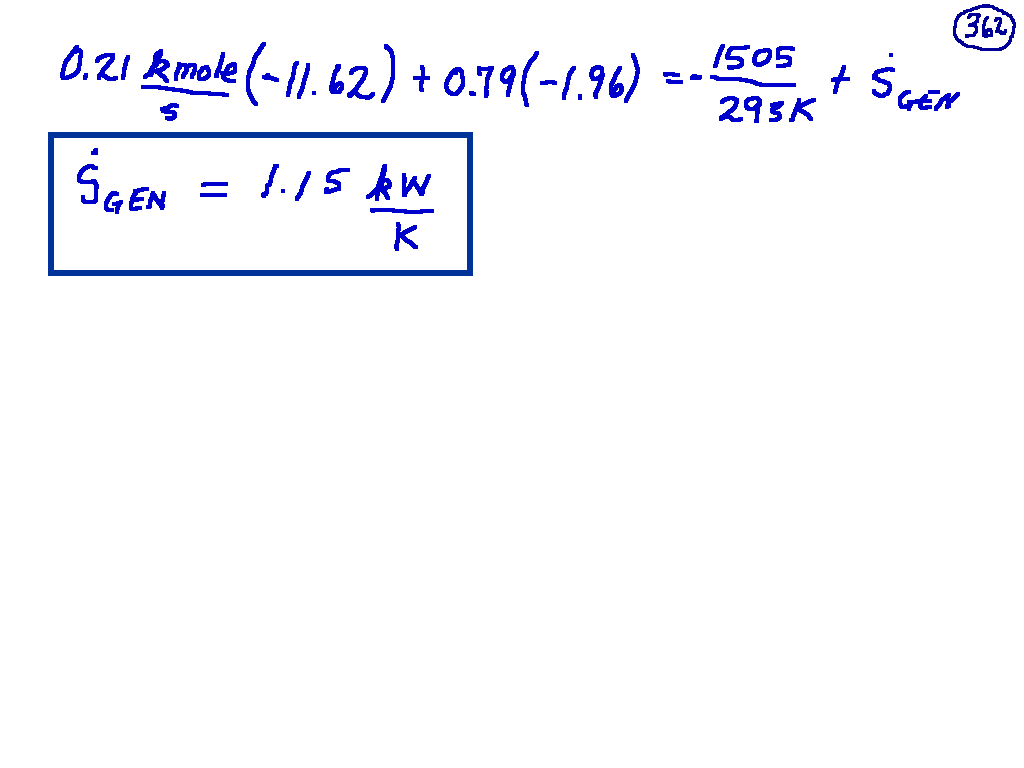 362
0.21 kmole/s (-11.62) + 0.79(-1.96) = - 1505/293K + Ṡ_GEN
Ṡ_GEN = 1.15 kW/K